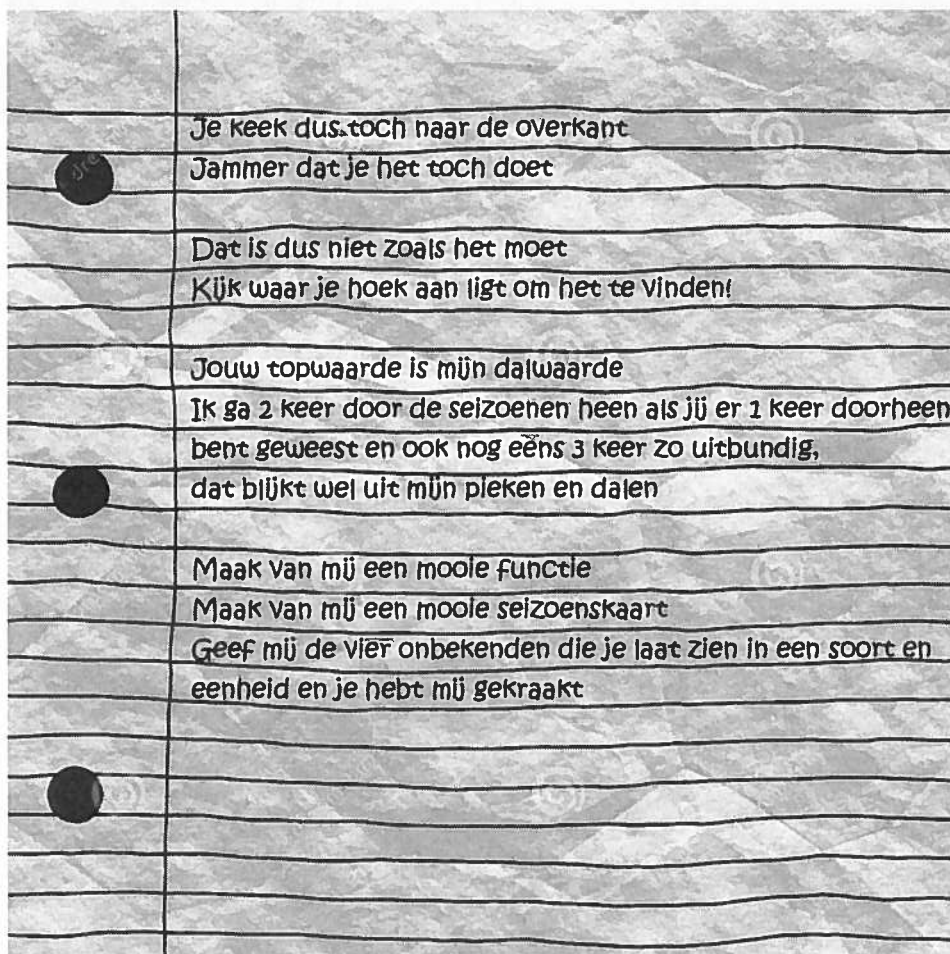 Je keek dus toch naar de overkant
Jammer dat je het toch doet
Dat is dus niet zoals het moet
Kijk waar je hoek aan ligt om het te vinden!
Jouw topwaarde is mijn dalwaarde
Ik ga 2 keer door de seizoenen heen als jij er 1 keer doorheen
bent geweest en ook nog eens 3 keer zo uitbundig,
dat blijkt wel uit mijn pieken en dalen
Maak van mij een mooie functie
Maak van mij een mooie seizoenskaart
Geef mij de vier onbekenden die je laat zien in een soort en
eenheid en je hebt mij gekraakt